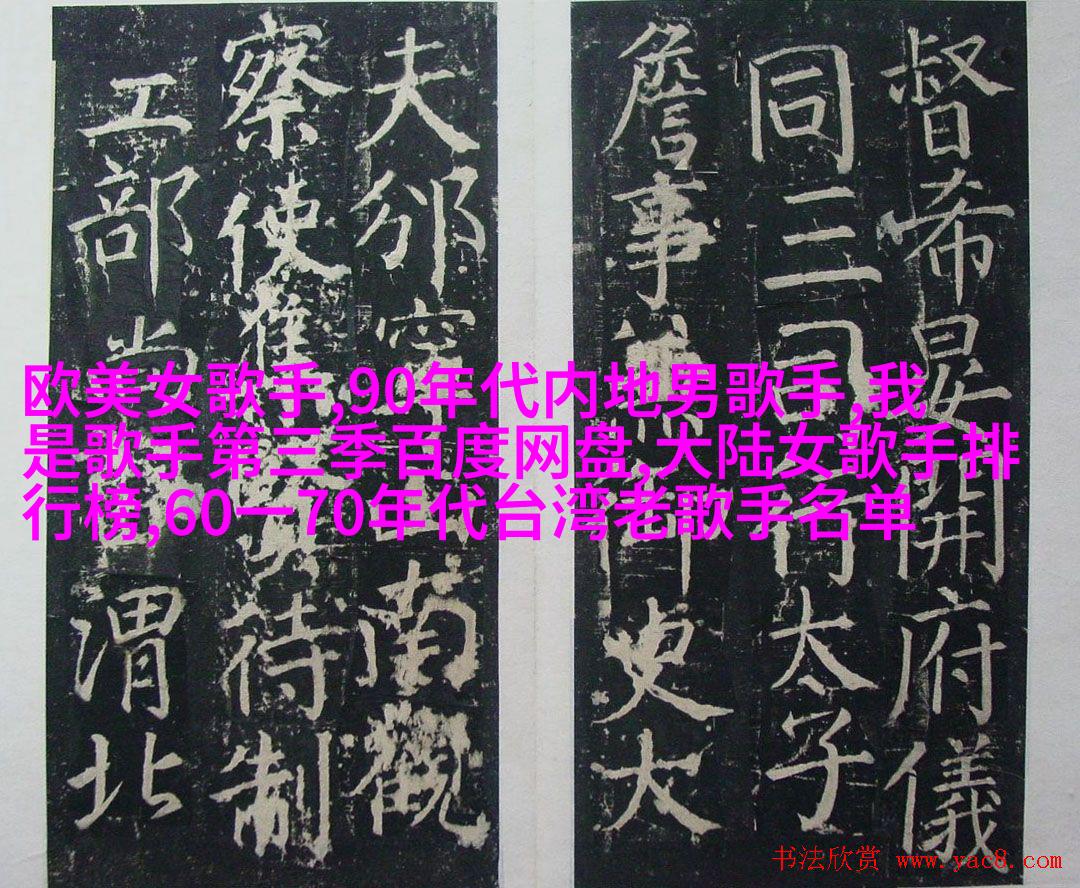 督希晏開府儀
同三司行太子
詹事兼史大
夫邠寧南觀
察使待制
工部尚渭北
欧美女歌手,90年代内地男歌手,我
是歌手第三季百度网盘,大陆女歌手排
行榜,60一70年代台湾老歌手名单
书法欣赏 www.yac8.com